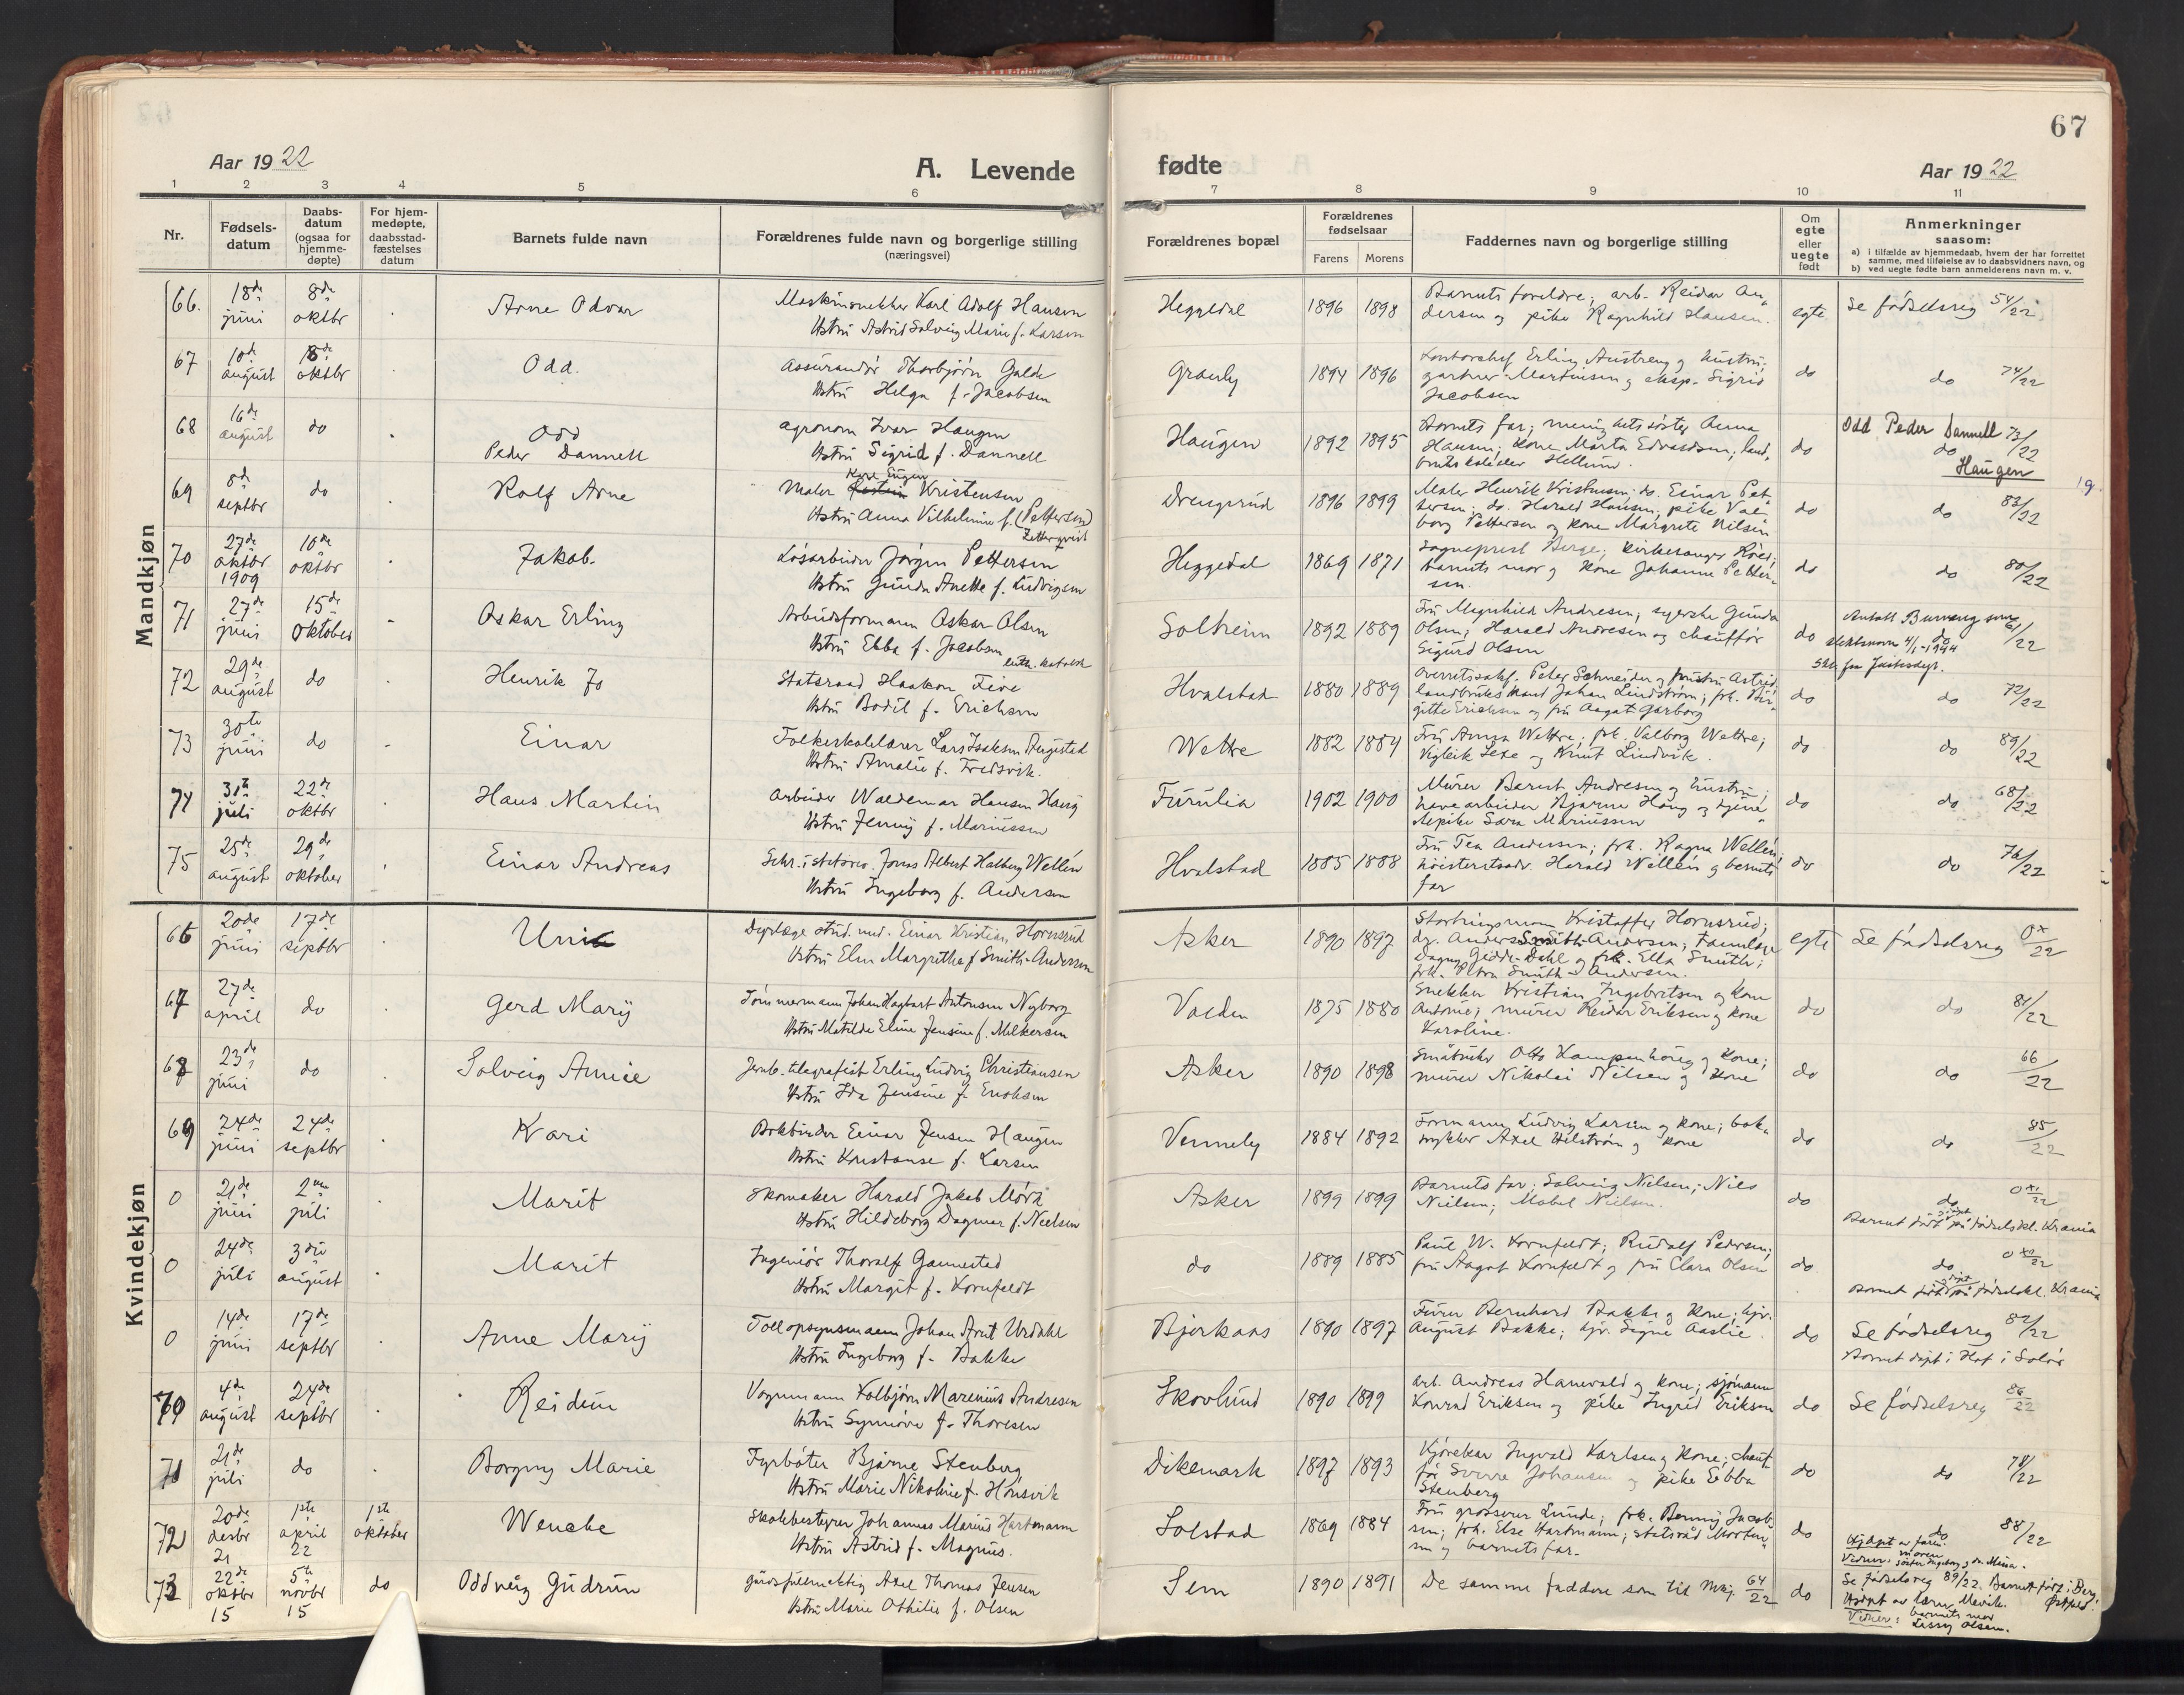 67
Aar 1922
A. Levende
fødte
Aar 1922
1 2 3 4 5 6 7 8 9 10 11
Nr.
Fødsels-
datum
Daabs-
datum
(ogsaa for
hjemme-
døpte)
For hjem-
medøpte,
daabsstad-
fæstelses
datum
Barnets fulde navn
Forældrenes fulde navn og borgerlige stilling
(næringsvei)
Forældrenes bopæl
Forældrenes
fødselsaar
Farens Morens
Faddernes navn og borgerlige stilling
Om
egte
eller
uegte
født
Anmerkninger
saasom:
a) i tilfælde av hjemmedaab, hvem der har forrettet
samme, med tilføielse av to daabsvidners navn, og
b) ved uegte fødte barn anmelderens navn m. v.
Mandkjøn
66. 18de juni 8de oktbr Arne Odvar Maskinsnekker Karl Adolf Hansen
Hstru Astrid Solveig Marie f. Larsen
Heggedal 1896 1898 Barnets foreldre; arb. Reidar An-
dersen og pike Ragnhild Hansen. egte Se fødselsreg 54/22
67 10de august 18de oktbr Odd. Assurandør Thorbjørn Galde
Hstru Helga f. Jacobsen
1894 1896 Kontorchef Erling Austreng og hustru;
gartner Martinsen og eksp. Sigrid
Jacobsen do do 74/22
68 16de august do Odd
Peder Dannell agronom Ivar Haugen
Hstru Sigrid f. Dannell
Haugen 1892 1895 Barnets far; menighetssøster Anna
Hansen; kone Marta Edvardsen; land-
brukskole Hellum. do Odd Peder Dannell 73/22
do
Haugen
69 8de septbr do Rolf Arne Maler Kristensen
Hstru Anna Vilhelmine f. (Pettersen)
Zetterqvist
Drengsrud 1896 1899 Maler Henrik Kristensen; do. Einar Pet-
tersen; do. Harald Hansen; pike Val-
borg Pettersen og kone Margrete Nilsen do do 83/22
70 27de oktbr 1909 10de oktbr Jakob. Løsarbeider Jørgen Pettersen
Hstru Gunda Anette f. Ludvigsen
Heggedal 1869 1871 Sogneprest Berge; kirkesanger
barnets mor og kone Johanne Petter-
sen. do do 80/22
71 27de juni 15de oktober Oskar Erling Arbeidsformann Oskar Olsen
Hstru Ebba f. Jacobsen
Solheim 1892 1889 Fru Magnhild Andresen; syerske Gunda
Olsen; Harald Andresen og chauffør
Sigurd Olsen do Antatt som
slektsnavn 4/1-1944 do 61/22
72 29de august do Henrik Jo Statsraad Haakon Five
Hstru Bodil f. Erichsen
Hvalstad 1880 1889 Overretssakf. Peter Schneider og hustru Astrid
landbrukskand Johan Lindstrøm; frk. Bir-
gitte Erichsen og fru Aagot Garborg do do 72/22
73 30te juni do Einar Folkeskolelærer Lars Isaksen Augestad
Hstru Amalie f. Fredsvik.
Wettre 1882 1884 Fru Anna Wettre; frk. Valborg Wettre;
Vigleik Lexe og Knut Lindvik. do do 89/22
74 31te juli 22de oktbr Hans Martin Arbeider Waldemar Hansen Haug
Hstru Jenny f. Mariussen
Furulia 1902 1900 Murer Bernt Andresen og hustru;
havearbeider Bjarne Haug og tjene-
stepike Sara Mariussen do do 68/22
75 25de august 29de oktober Einar Andreas Sekr. i Jonas Albert Halberg Wellén
Hstru Ingeborg f. Andersen
Hvalstad 1885 1888 Fru Tea Andersen; frk. Ragna Wellén;
høiesteretsadv. Harald Wellén og barnets
far do do 76/22
Kvindekjøn
66 20de juni 17de septbr Uni Dyrlæge stud. med. Einar Kristian Hornsrud
Hstru Elsa Margrethe f Smith-Andersen
Asker 1890 1897 Stortingsmann Kristoffer Hornsrud;
dr. Anders Smith-Andersen; Tannlæge
Dagny Gedde-Dahl og frk. Ella Smith;
frk. Petra Smith-Andersen. egte Se fødselsreg 0x/22
67 27de april do Gerd Mary Tømmermann Johan Hagbart Antonsen Nyborg
Hstru Matilde Eline Jensine f. Melkersen
Vøien 1875 1880 Snekker Kristian Ingebretsen og kone
Antonie; murer Reidar Eriksen og kone
Karoline. do do 81/22
68 23de juni do Solveig Annie Jernb.telegrafist Erling Ludvig Christiansen
Hstru Ida Jensine f. Enoksen
Asker 1890 1898 Småbruker Otto Kampenhøug og kone;
murer Nikolai Nilsen og kone do do 66/22
69 24de juni 24de septbr Kari Bokbinder Einar Jensen Haugen
Hstru Konstanse f. Larsen
Venneby 1884 1892 Formann Ludvig Larsen og kone; bok-
trykker Axel Hilstrøm og kone do do 85/22
0 21de juni 2den juli Marit Skomaker Harald Jakob Mørk
Hstru Hildeborg Dagmar f. Neelsen
Asker 1899 1899 Barnets far; Solveig Nilsen; Nils
Nielsen; Mabel Nielsen. do do 0xx/22
Barnet født på fødselskl. Krania
0 24de juli 3die august Marit Ingeniør Thoralf Gannestad
Hstru Margit f. Kornfeldt
do 1889 1885 Paul W. Kornfeldt; Rudolf Pedersen;
fru Aagot Kornfeldt og fru Clara Olsen do do 0xx/22
Barnet født på fødselskl. Krania
0 14de juni 17de septbr Anne Mary Tollopsynsmann Johan Arnt Urdahl
Hstru Ingeborg f. Bakke
Bjerkaas 1890 1897 Furer Bernhard Bakke og kone; gjv.
August Bakke; gjv. Signe Aaslie. do Se fødselsreg 82/22
Barnet døpt i Hof i Solør
70 4de august 24de septbr Reidun Vognmann Kolbjørn Marenius Andresen
Hstru Synnøve f. Thoresen
Skovlund 1890 1899 Arb. Andreas Hanevold og kone; sjømann
Konrad Eriksen og pike Ingrid Eriksen do Se fødselsreg 86/22
71 21de juli do Borgny Marie Fyrbøter Bjarne Stenberg
Hstru Marie Nikoline f. Hønsvik
Dikemark 1897 1893 Kjørekar Ingvald Karlsen og kone; chauf-
før Sverre Johansen og pike Ebba
Stenberg do do 78/22
72 20de desbr 21 1ste april 22 1ste oktober Wenche Skolebestyrer Johannes Marius Hartmann
Hstru Astrid f. Magnus.
Solstad 1869 1884 Fru grosserer Lunde; frk. Benny Jacob-
sen; frk. Else Hartmann; statsråd Morten-
sen og barnets far. do do 88/22
Hjdøpt av faren.
Vidner: moren
søster Ingeborg
73 22de oktbr 15 5te novbr 15 do Oddveig Gudrun Gårdsfullmektig Axel Thomas Jensen
Hstru Marie Othilie f. Olsen
Sem 1890 1891 De samme faddere som til Mkj. 64/22 do Se fødselsreg 89/22. Barnet født i Berg
Østfold.
Hjdøpt av lærer
Vidner: barnets mor
Lissy Olsen.